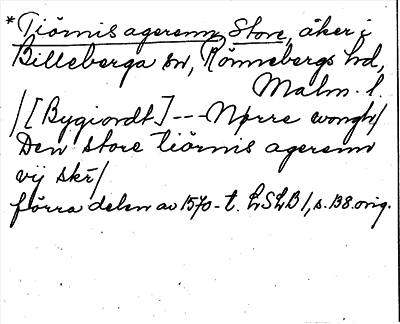 *Tiörnis agerenn, Store, åker i
Billeberga sn, Rönnebergs hd,
Malm. l.
/[Bygiordt] --- Nørre wongh/
Den store tiörnis agerenn
vij skr/
förra delen av 1570-t. LSLB 1, s. 138. orig.